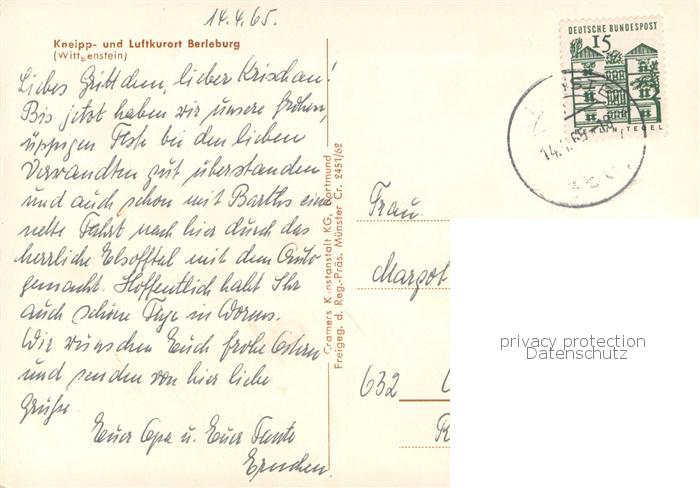 14.4.65.
Kneipp- und Luftkurort Berleburg
(Wittgenstein)
Liebes Grittchen, lieber Krischan!
Bis jetzt haben wir unsere frohen,
üppigen Feste bei den lieben
Verwandten gut überstanden
und auch schon mit Barths eine
nette Fahrt nach hier durch das
herrliche Elsofftal mit dem Auto
gemacht. Hoffentlich habt Ihr
auch schöne Tage in Worms.
Wir wünschen Euch frohe Ostern
und senden von hier liebe
Grüße
Euer Opa u. Eure Tante
Ernchen.
Cramers Kunstanstalt KG, Dortmund
Freigeg. d. Reg.-Präs. Münster Cr. 2451/62
DEUTSCHE BUNDESPOST
15
BERLIN TEGEL
Frau
Margot
632
privacy protection
Datenschutz